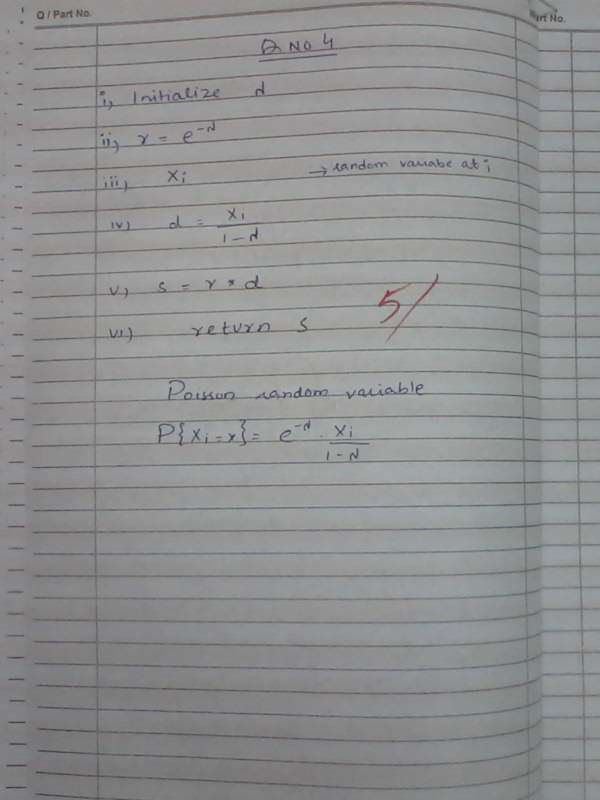 Q / Part No.
art No.
Q NO 4
i, Initialize d
ii, r = e^-d
iii, Xi → random variabe at i
iv) d = Xi / 1-d
v, s = r * d
vi) return s
5/
Poisson random variable
P{Xi=x} = e^-d . Xi / 1-d